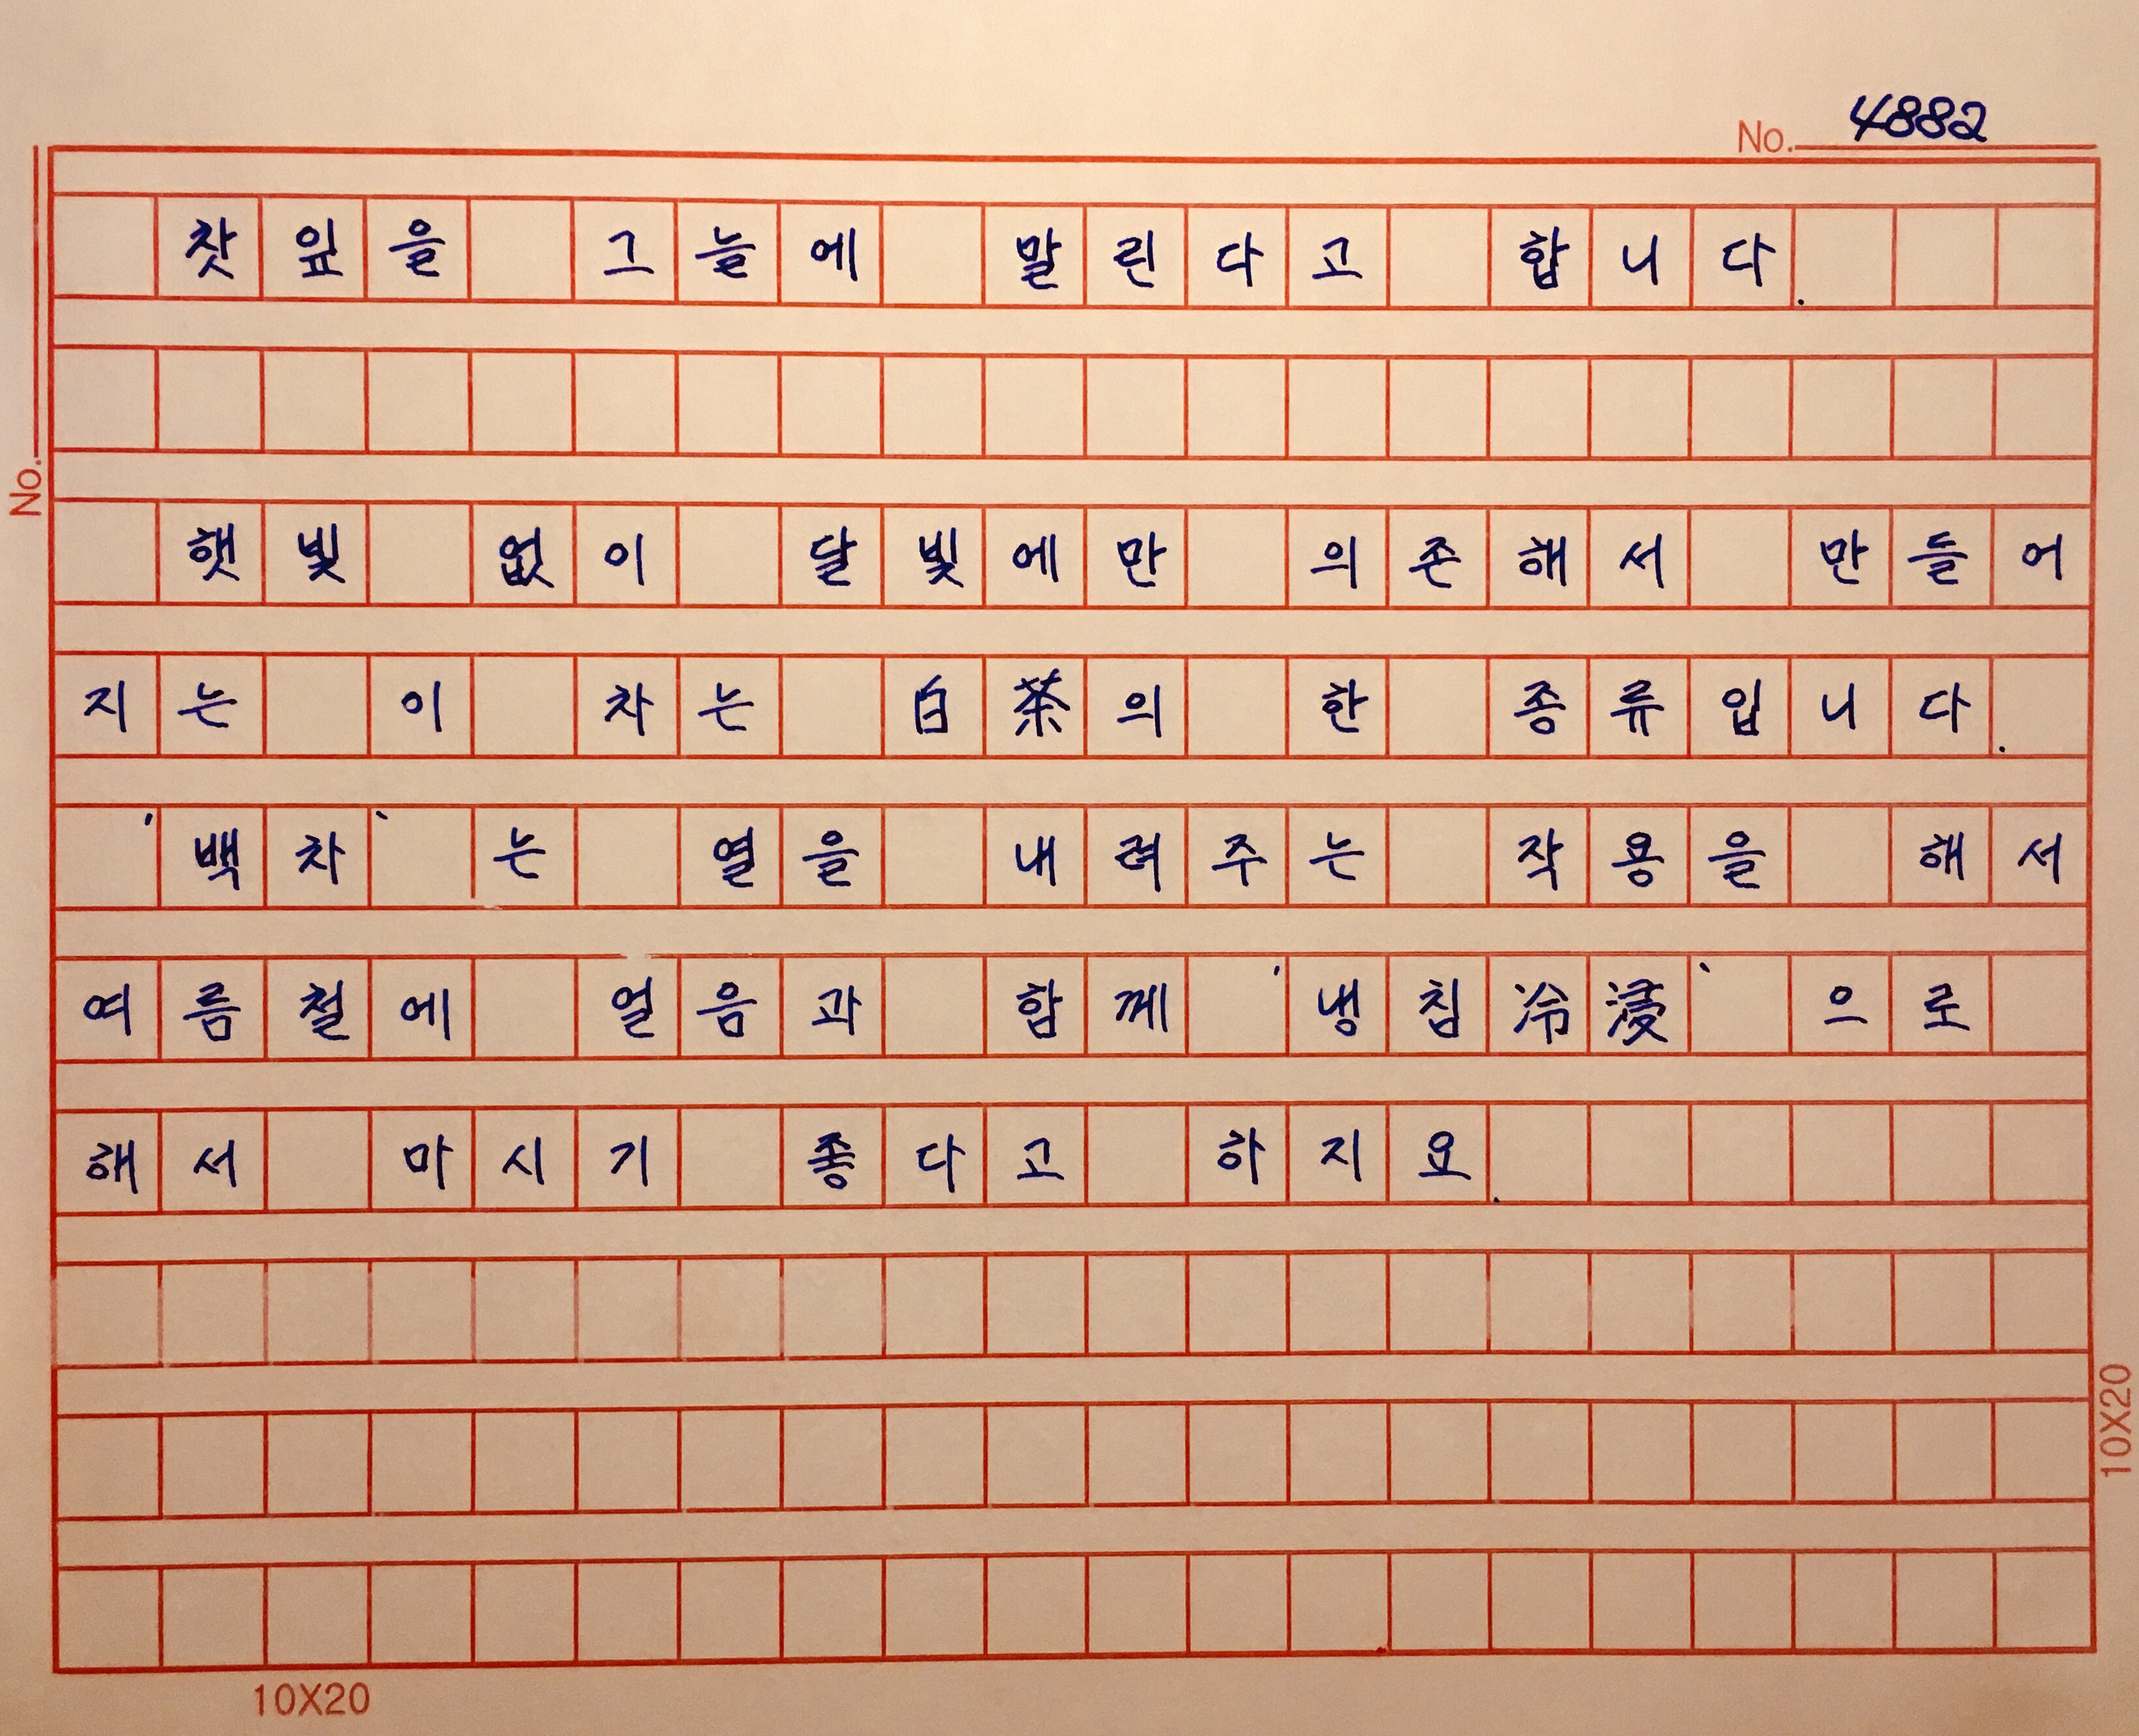 No. 4882
찻잎을 그늘에 말린다고 합니다.
No.
햇빛 없이 달빛에만 의존해서 만들어
지는 이 차는 白茶의 한 종류입니다.
'백차'는 열을 내려주는 작용을 해서
여름철에 얼음과 함께 '냉침冷浸'으로
해서 마시기 좋다고 하지요.
10X20
10X20